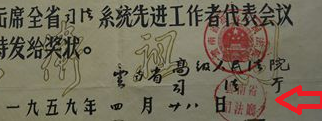 出席全省司法系统先进工作者代表会议
特发给奖状。
高级人民法院
司法厅
一九五九年四月廿八日